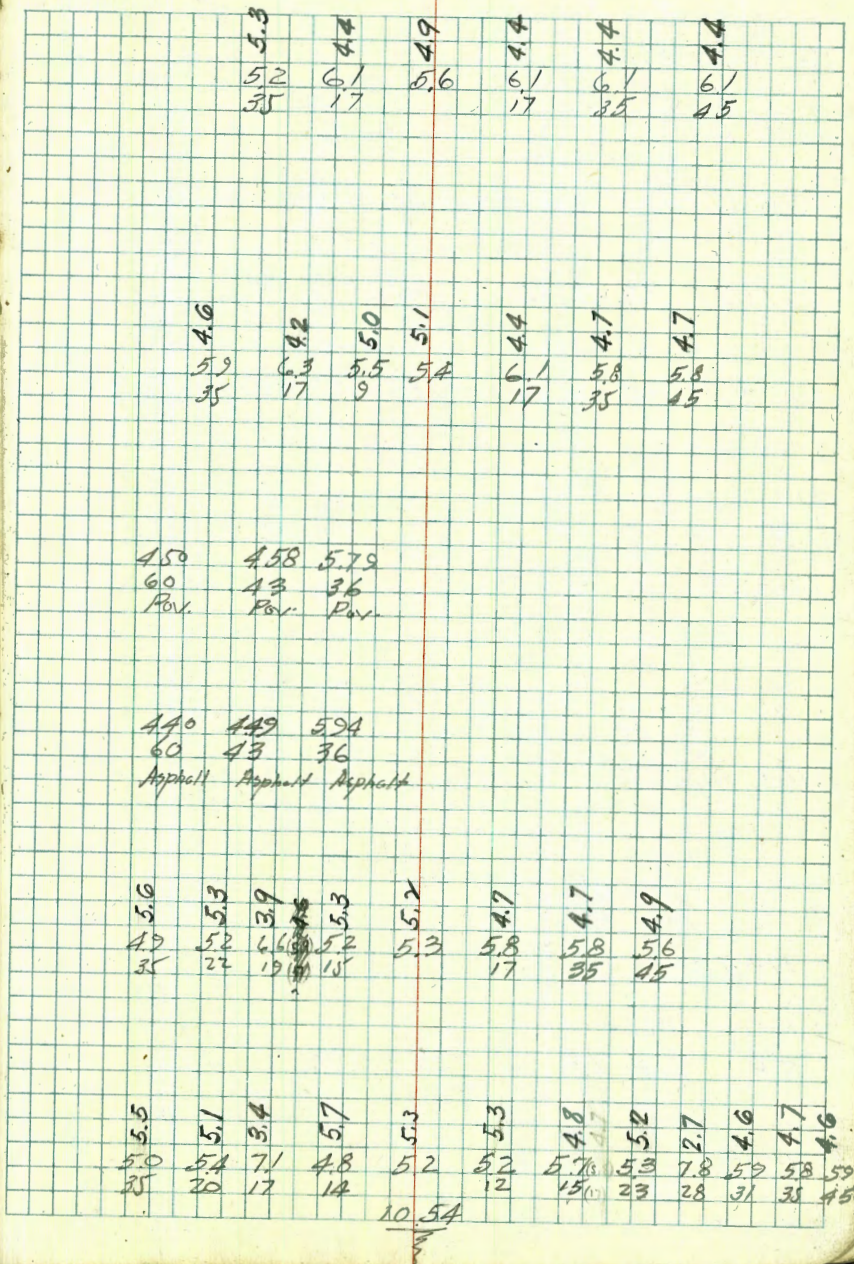 5.3 4.4 4.9 4.4 4.4 4.4
5.2 6.1 5.6 6.1 6.1 6.1
35 17 17 35 45
4.6 4.2 5.0 5.1 4.4 4.7 4.7
5.9 6.3 5.5 5.4 6.1 5.8 5.8
35 17 9 17 35 45
4.50 4.58 5.79
60 43 36
Pav. Pav. Pav.
4.40 4.49 5.94
60 43 36
Asphalt Asphalt Asphalt
5.6 5.3 3.9 5.3 5.2 4.7 4.7 4.9
4.9 5.2 6.6 5.2 5.3 5.8 5.8 5.6
35 22 19 15 17 35 45
5.5 5.1 3.4 5.7 5.3 5.3 4.8 4.7 5.2 2.7 4.6 4.7 4.6
5.0 5.4 7.1 4.8 5.2 5.2 5.7 5.3 7.8 5.9 5.8 5.9
35 20 17 14 12 15 23 28 31 35 45
10.54